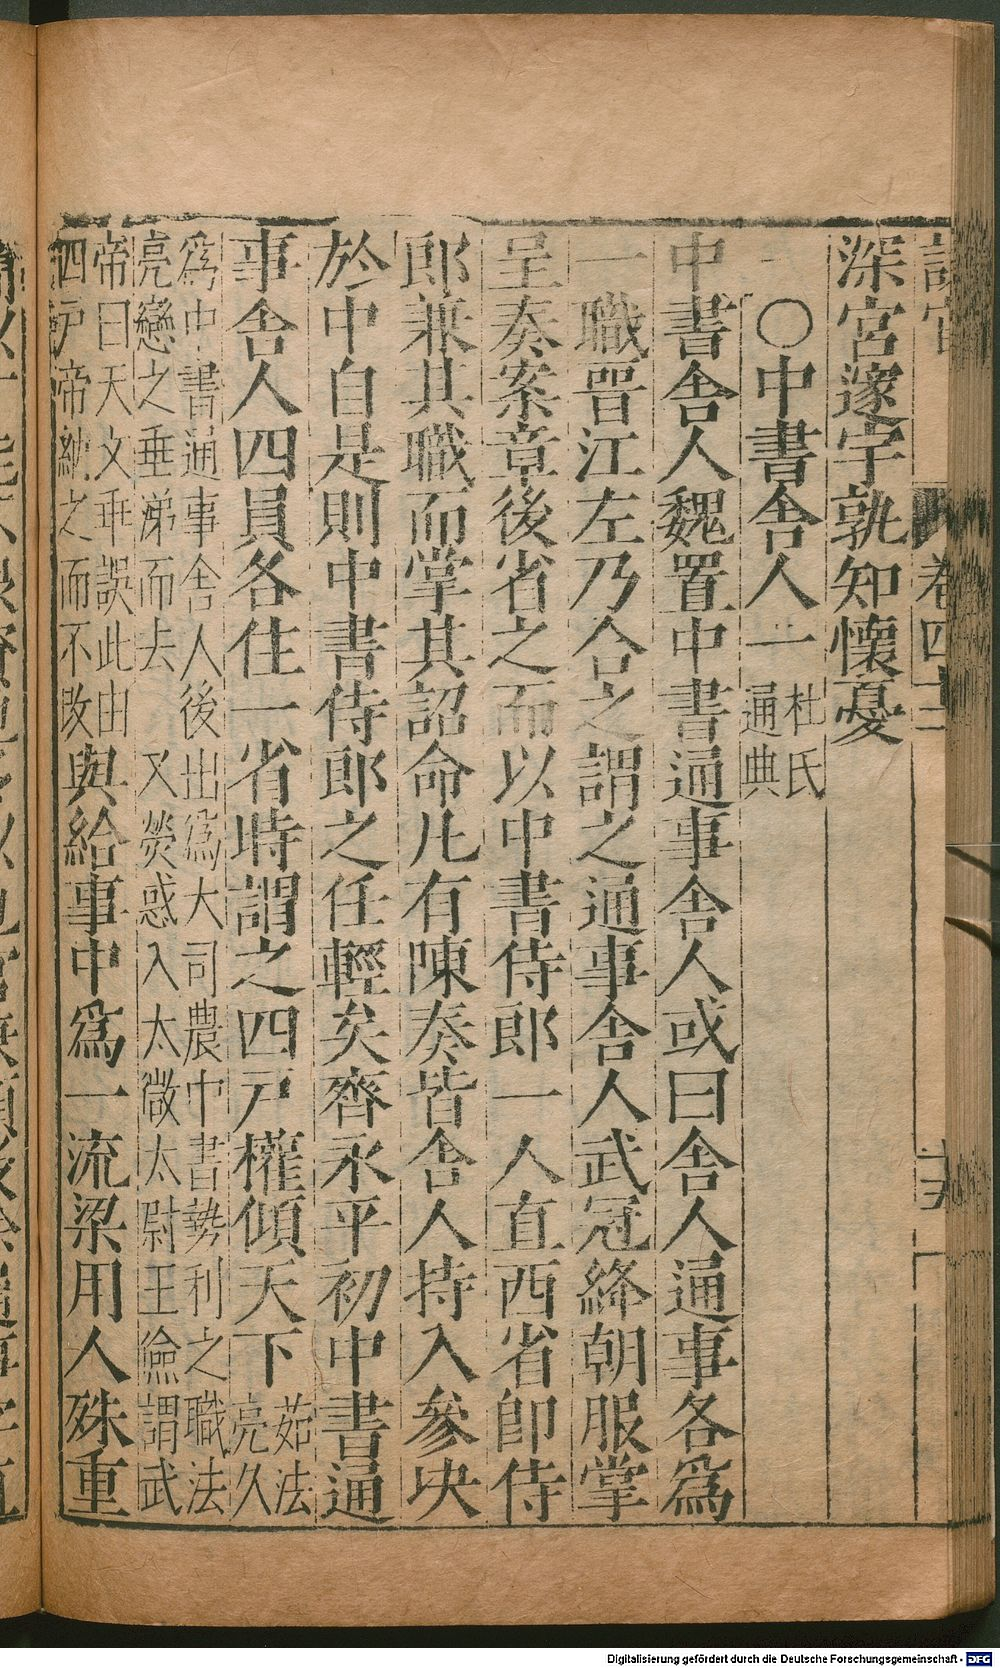 深宮邃宇孰知懷憂
○中書舍人一杜氏通典
中書舍人魏置中書通事舍人或曰舍人通事各爲
一職晉江左乃合之謂之通事舍人武冠絳朝服掌
呈奏案章後省之而以中書侍郎一人直西省卽侍
郎兼其職而掌其詔命凡有陳奏皆舍人持入參決
於中自是則中書侍郎之任輕矣齊永平初中書通
事舍人四員各住一省時謂之四戸權傾天下茹法亮久
爲中書通事舍人後出爲大司農中書勢利之職法
亮戀之垂涕而去 又熒惑入太微太尉王儉謂武
帝曰天文乖誤此由
四戸帝納之而不改與給事中爲一流梁用人殊重
卷四十二
Digitalisierung gefördert durch die Deutsche Forschungsgemeinschaft - DFG